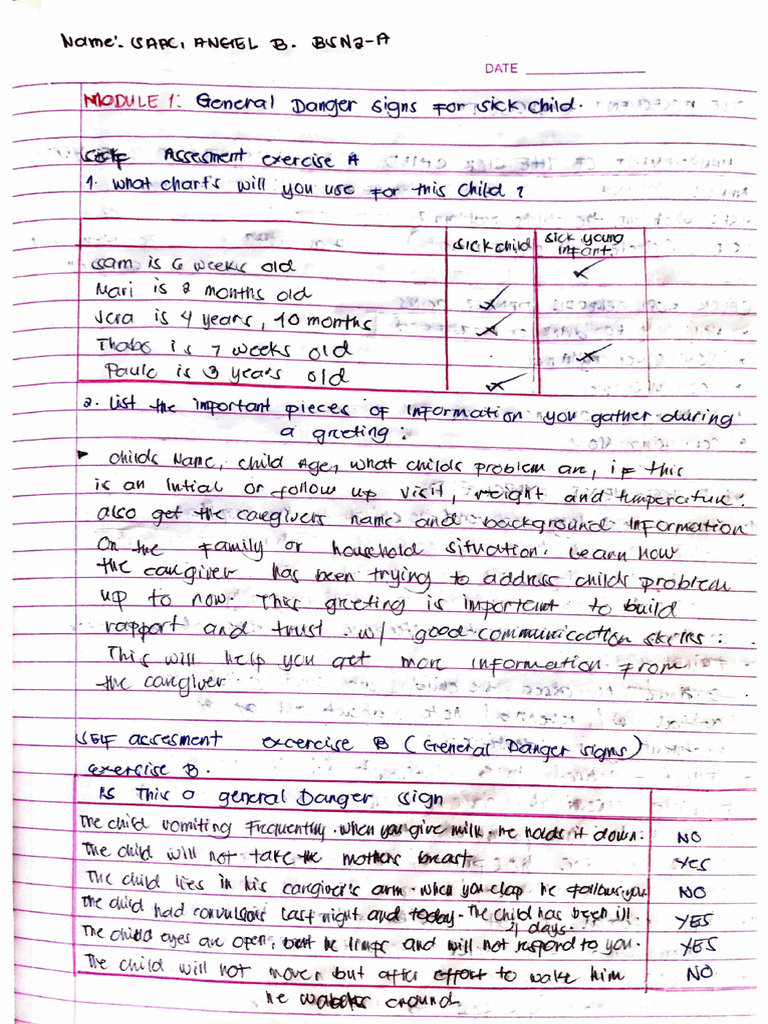 Name: ISAAC, ANGEL B. BSN2-A
DATE
MODULE 1: General Danger signs for sick child.
Self Assesment exercise A
1. What charts will you use for this child?
sick child sick young infant.
Sam is 6 weeks old ✓
Mari is 2 months old ✓
Jera is 4 years, 10 months ✓
Thabo is 7 weeks old ✓
Paulo is 3 years old ✓
2. List the important pieces of information you gather during
a greeting:
Childs Name, child Age, what childs problem are, if this
is an Intial or follow up visit, weight and temperature.
also get the caregivers name and background information
On the family or household situation. Learn how
the caregiver has been trying to address childs problem
up to now. This greeting is important to build
rapport and trust w/ good communication skills.
This will help you get more information from
the caregiver
SELF assesment excercise B (General Danger signs)
exercise B.
Is this a general Danger sign
The child vomiting frequently. when you give milk. he holds it down. NO
The child will not take the mothers breast. Yes
The child lies in his caregiver's arm. when you clap he follows you NO
The child had convulsions last night and today. The child has been ill 4 days. YES
The child eyes are open, but he limps and will not respond to you. YES
The child will not move but after effort to wake him NO
he wakes around